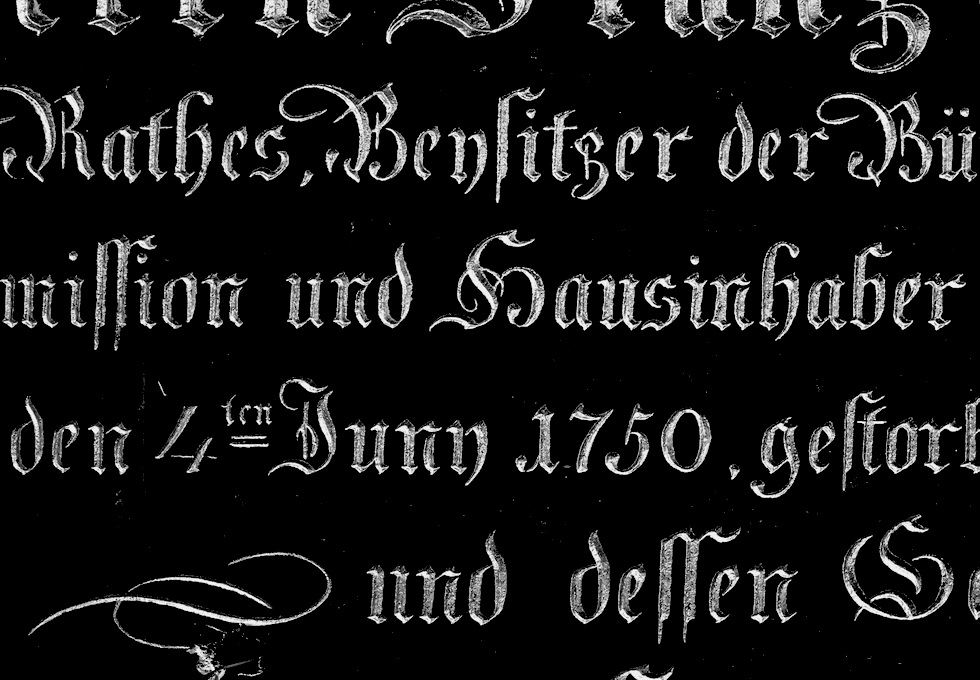 Rathes, Beysitzer der Bü
mission und Hausinhaber
den 4ten Juny 1750, gestorb
und dessen Ge